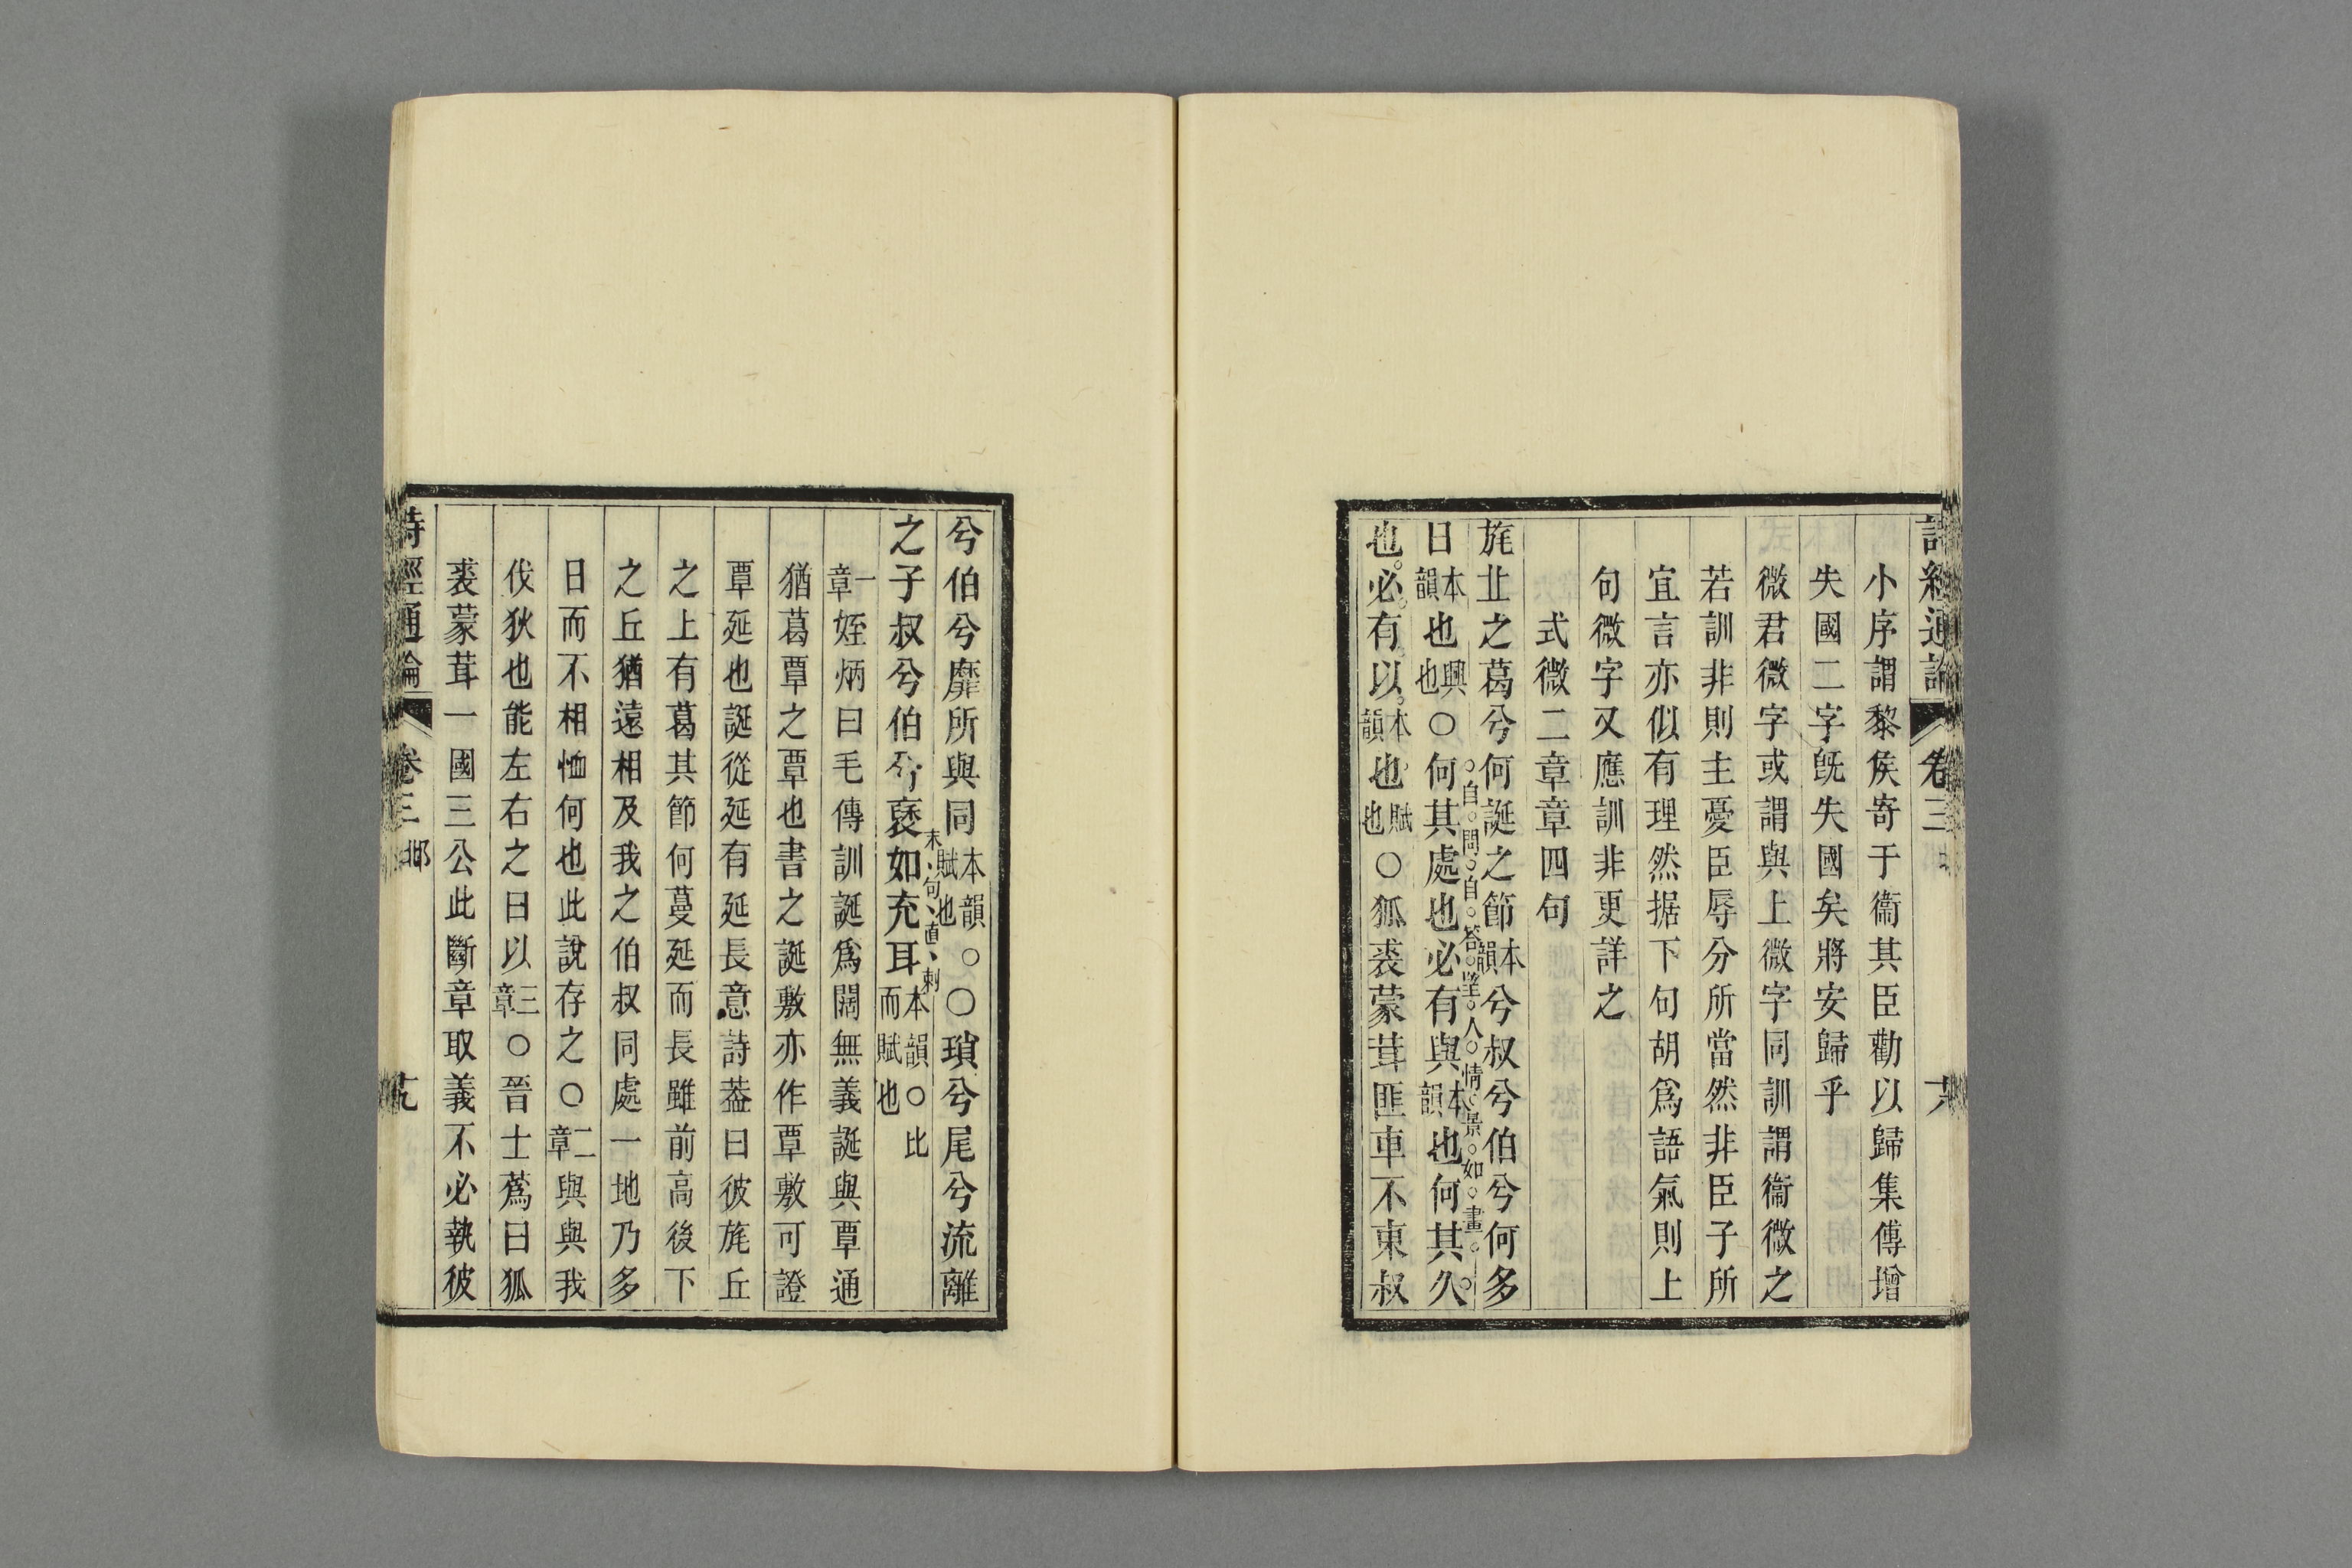 詩經通論 卷三 十八
小序謂黎侯寄于衞其臣勸以歸集傳增
失國二字旣失國矣將安歸乎
微君微字或謂與上微字同訓謂衞微之
若訓非則主憂臣辱分所當然非臣子所
宜言亦似有理然据下句胡爲語氣則上
句微字又應訓非更詳之
式微二章章四句
旄丘之葛兮何誕之節本韻兮叔兮伯兮何多
自問自答望人情景如畫
日本韻也興也○何其處也必有與本韻也何其久
也必有以本韻也賦也○狐裘蒙茸匪車不東叔
兮伯兮靡所與同本韻賦也○○瑣兮尾兮流離
末句直刺
之子叔兮伯兮褎如充耳本韻○比而賦也
一章姪炳曰毛傳訓誕爲闊無義誕與覃通
猶葛覃之覃也書之誕敷亦作覃敷可證
覃延也誕從延有延長意詩葢曰彼旄丘
之上有葛其節何蔓延而長雖前高後下
之丘猶遠相及我之伯叔同處一地乃多
日而不相恤何也此說存之○二章與與我
伐狄也能左右之曰以三章○晉士蔿曰狐
裘蒙茸一國三公此斷章取義不必執彼
詩經通論 卷三 邶 十九